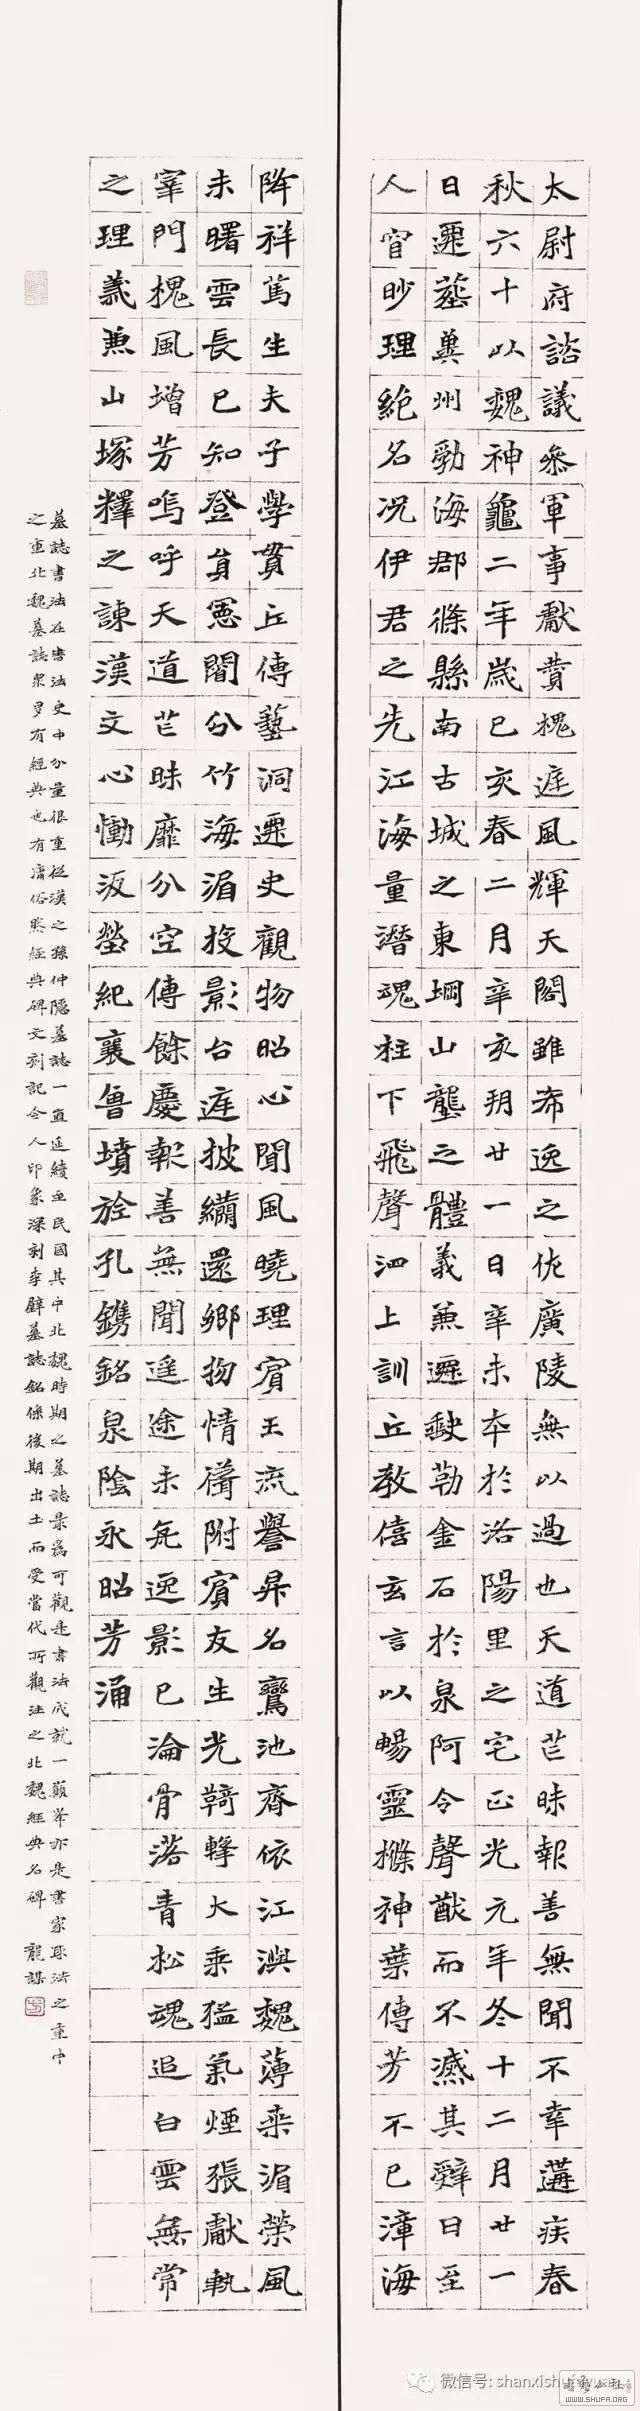 太尉府諮議參軍事獻賫槐庭風輝天閣雖布逸之佐廣陵無以過也天道芒昧報善無聞不幸遘疾春
秋六十以魏神龜二年歲己亥春二月辛亥朔廿一日辛未卒於洛陽里之宅正光元年冬十二月廿一
日遷葬冀州勃海郡條縣南古城之東堈山壟之體義兼遷缺勒金石於泉阿令聲猷而不滅其辭曰至
人窅眇理絶名況伊君之先江海量潛魂柱下飛聲泗上訓丘教僖玄言以暢靈撡神葉傳芳不已漳海
降祥篤生夫子學貫丘傳藝洞遷史觀物昭心聞風曉理賓王流譽昇名鸞池齊依江澳魏薄來湄榮風
未曙雲長已知登員憲閣分竹海湄投影台庭披纈還鄉物情舊附賓友生光鞫蜂大乘猛氣煙張獻執
宰門槐風增芳嗚呼天道芒昧靡分空傳餘慶報善無聞遥途未死逸影已淪骨落青松魂追白雲無常
之理義兼山塚釋之諫漢文心慟泝塋紀襄魯墳旌孔鐫銘泉陰永昭芳涌
墓誌書法在書法史中分量很重從漢之孫仲隱墓誌一直延續至民國其中北魏時期之墓誌最為可觀是書法成就一巔峯亦是書家取法之重中
之重北魏墓誌衆多有經典也有庸俗然經典碑文刻記令人印象深刻李璧墓誌銘係後期出土而受當代所觀注之北魏經典名碑 龍謀
微信号: shanxishufayuan
WWW.SHUFA.ORG